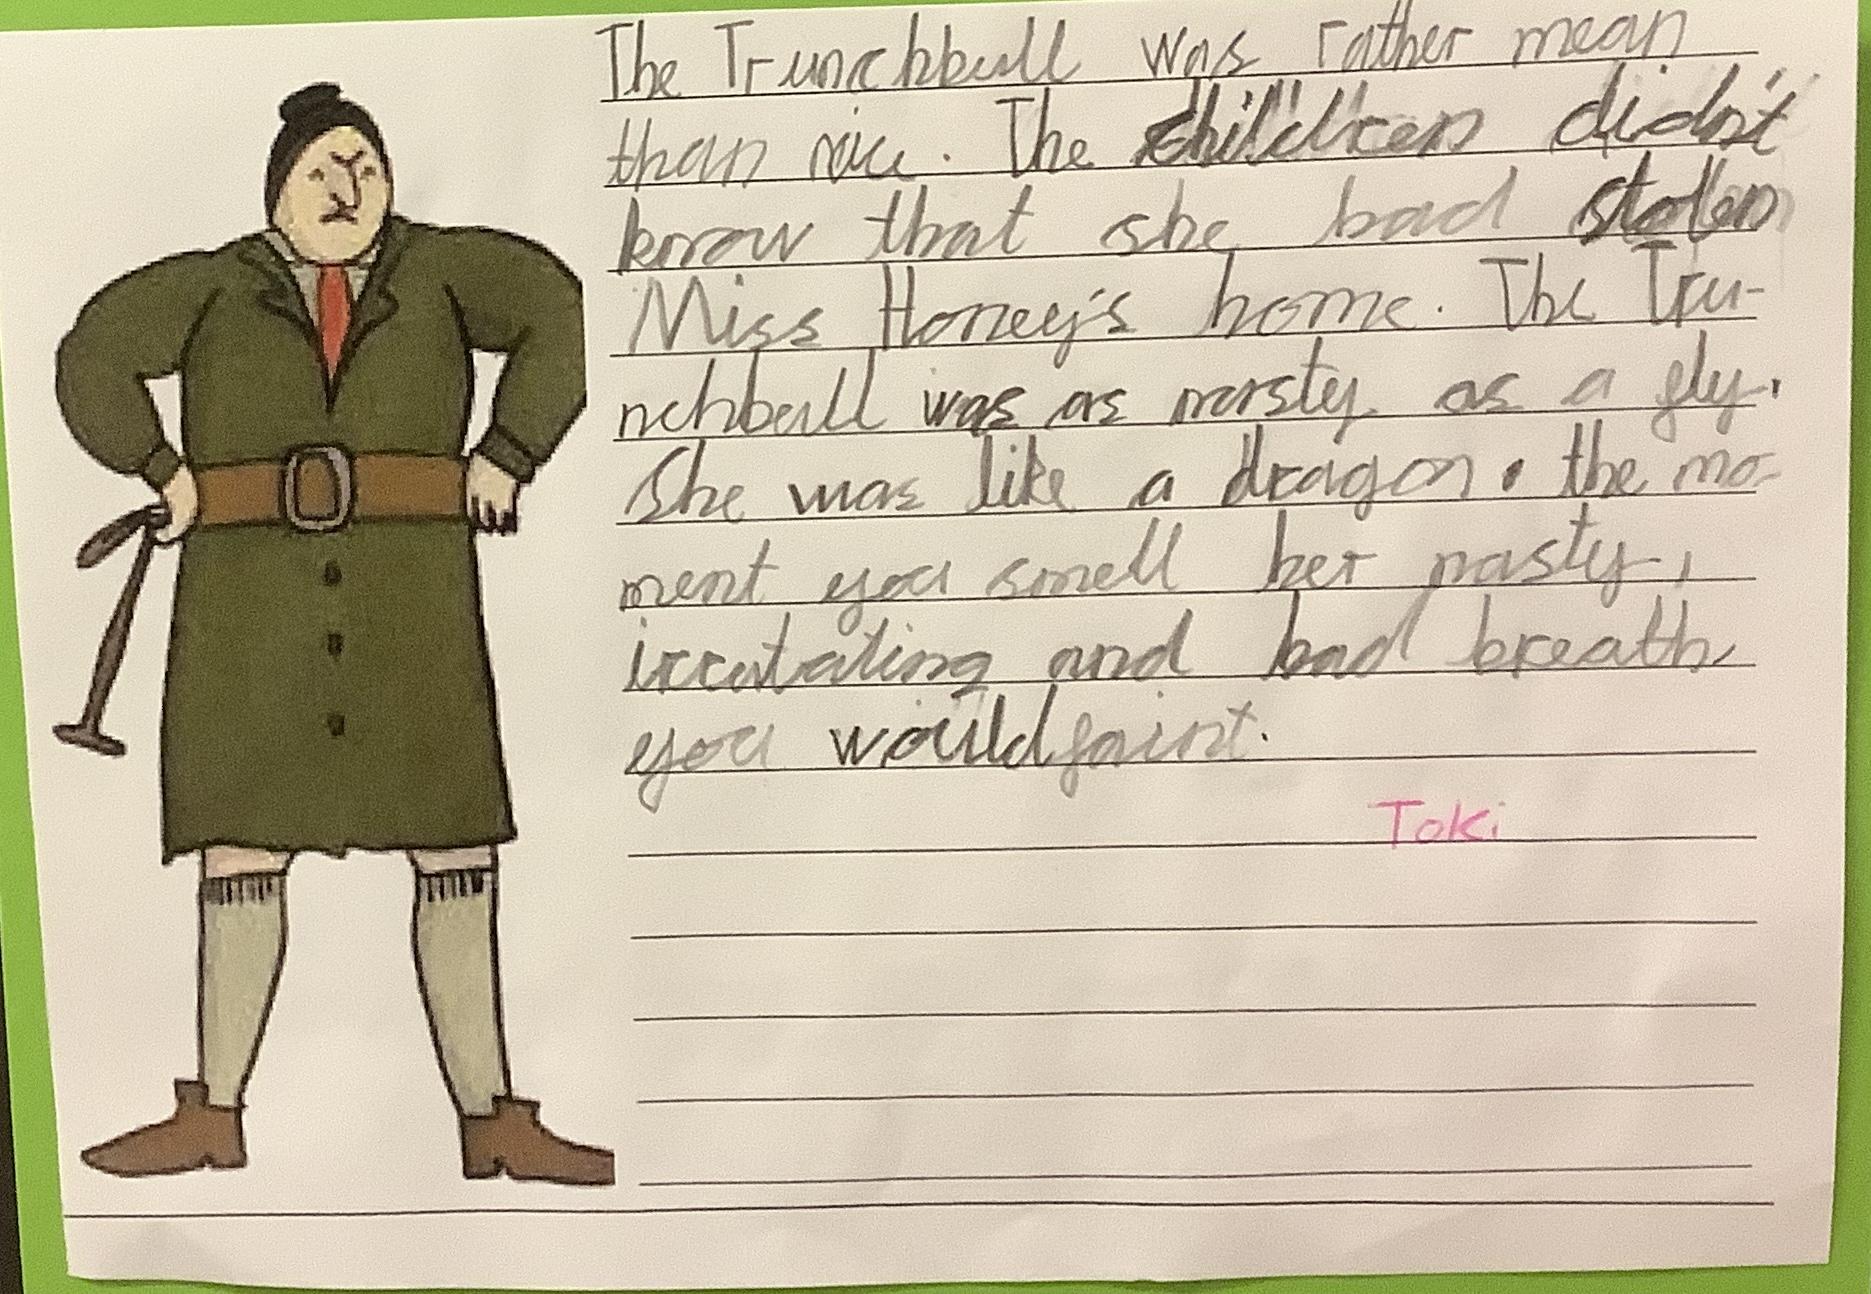 The Trunchbull was rather mean
than nice. The children didn't
know that she had stolen
Miss Honey's home. The Tru-
nchbull was as nasty as a fly.
She was like a dragon. the mo-
ment you smell her nasty,
irratating and bad breath
you would faint.
Toki